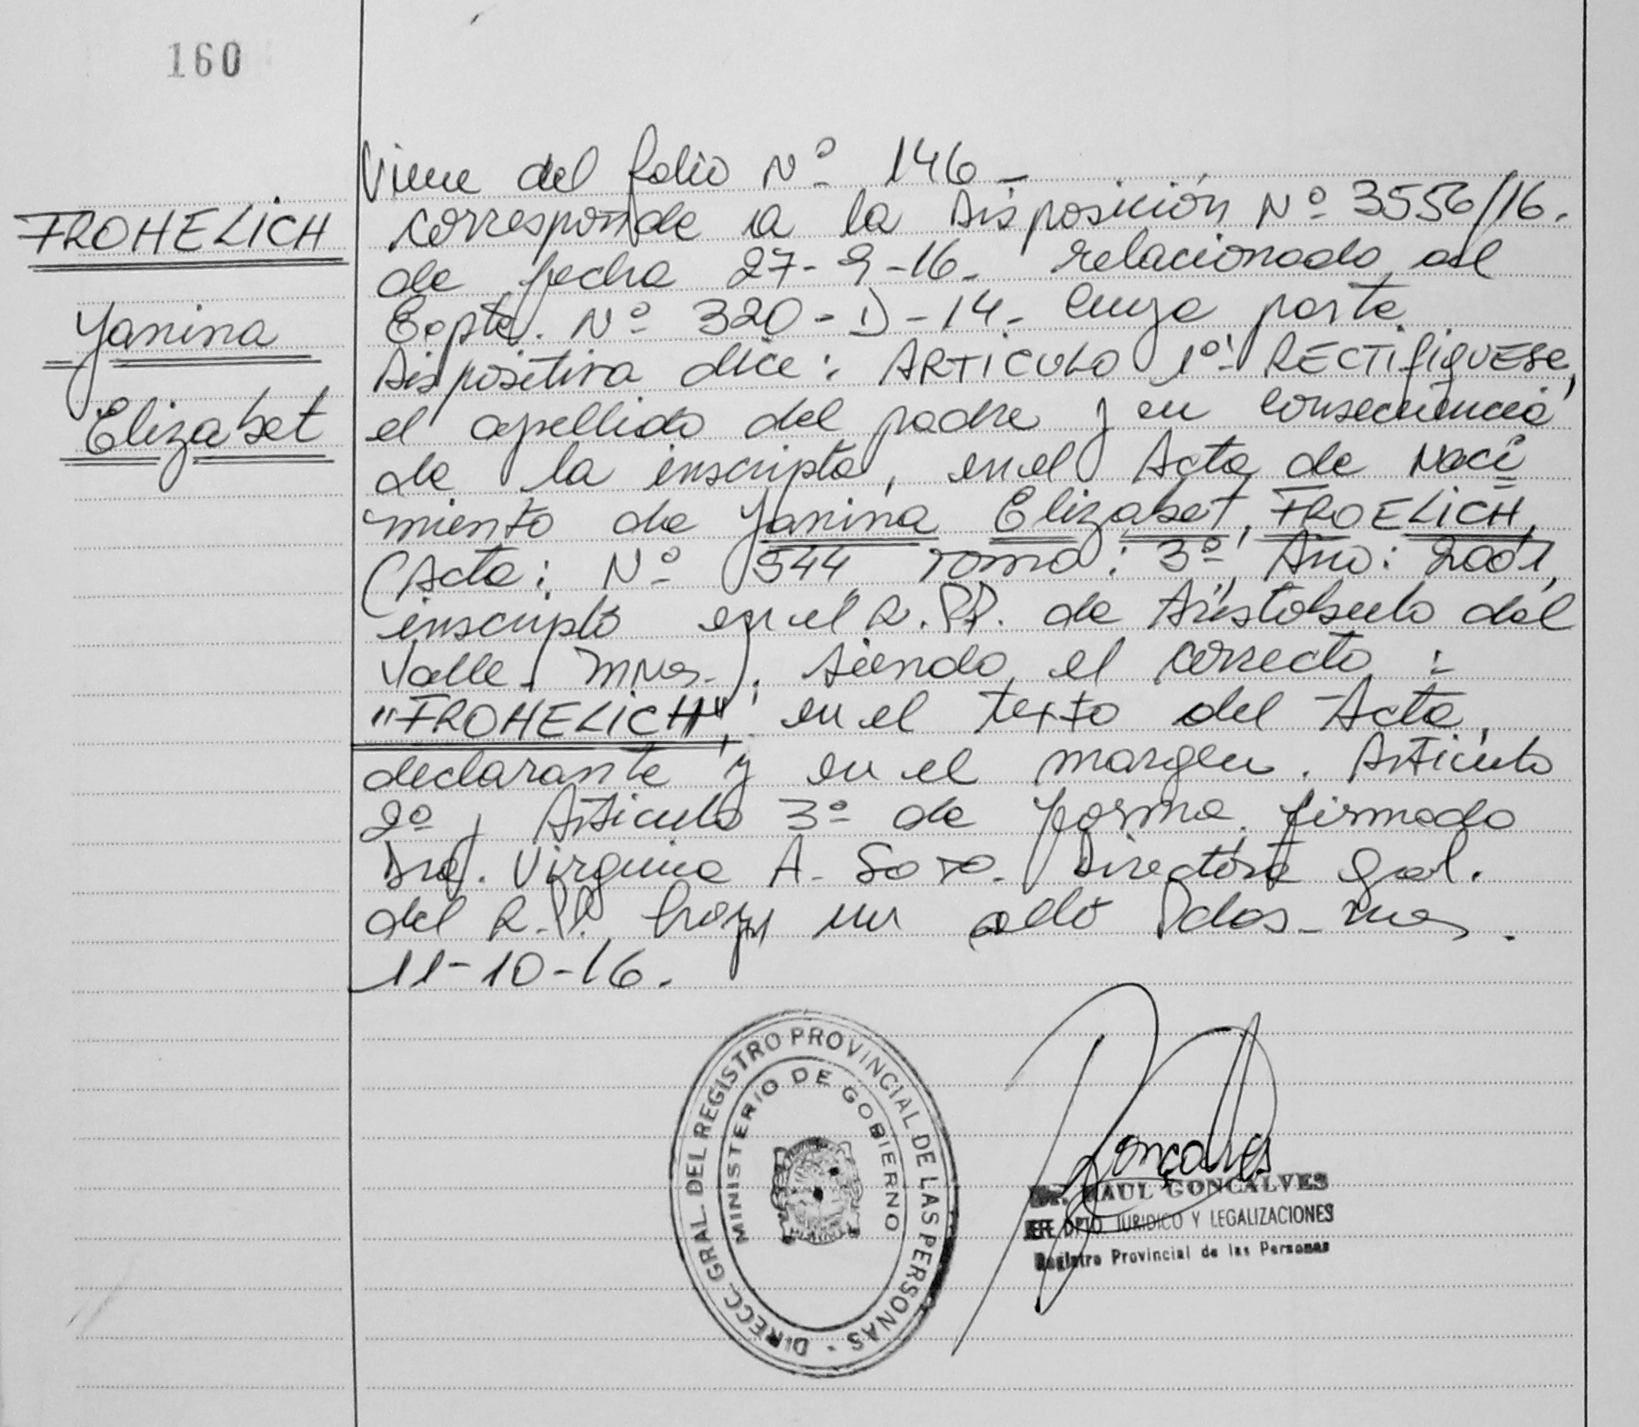 160
FROHELICH
Yanina
Elizabet
Viene del folio Nº 146 -
corresponde a la Disposición Nº 3556/16.
de fecha 27-9-16. relacionado al
Expte. Nº 320-D-14. cuya parte
Dispositiva dice: ARTICULO 1º: RECTIFIQUESE,
el apellido del padre y en consecuencia
de la inscripta, en el Acta de Naci
miento de Yanina Elizabet, FROELICH,
(Acta: Nº 544 Tomo: 3º Año: 2001,
inscripto en el R.PP. de Aristobulo del
Valle, Mnes.). siendo el correcto:
"FROHELICH", en el texto del Acta,
declarante y en el margen. Articulo
2º y Articulo 3º de forma. firmado
Dra. Virginia A. Soto. Directora Gral.
del R.P.P. hay un sello Pdas. Mnes.
11-10-16.
DIRECC. GRAL. DEL REGISTRO PROVINCIAL DE LAS PERSONAS -
MINISTERIO DE GOBIERNO
Goncalves
Dr. RAUL GONCALVES
JEFE DPTO. JURIDICO Y LEGALIZACIONES
Registro Provincial de las Personas